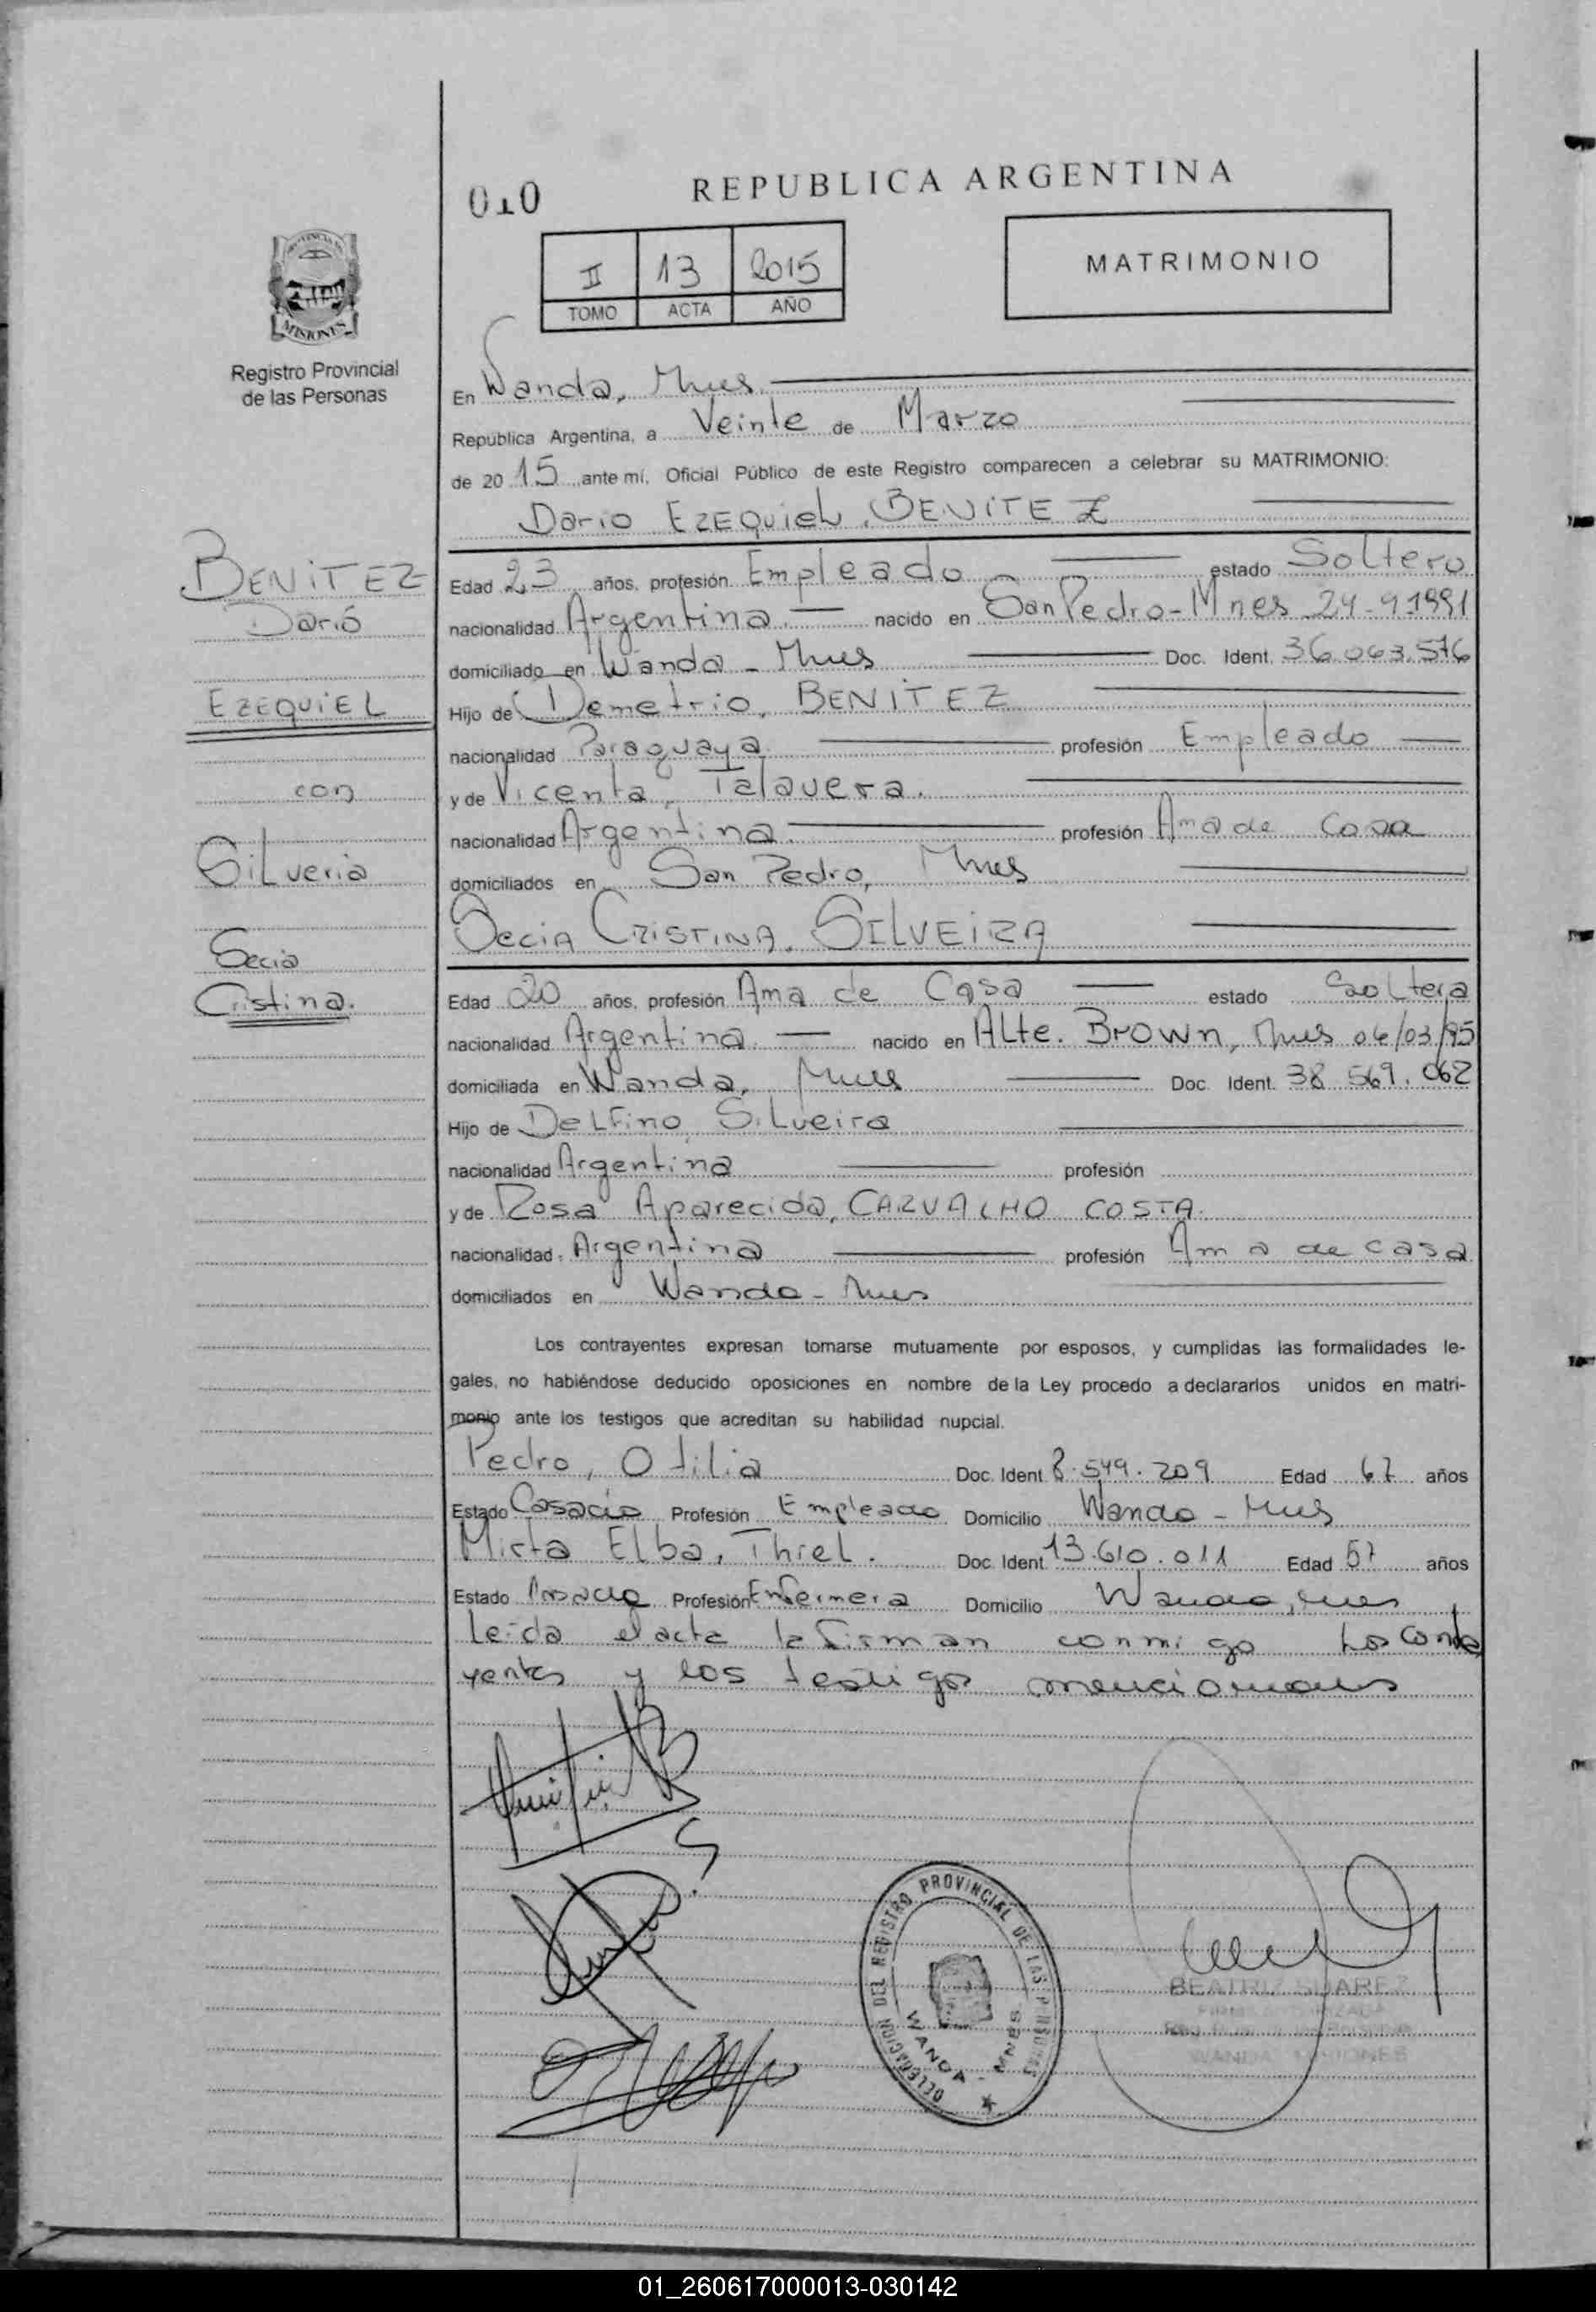 010
REPUBLICA ARGENTINA
II 13 2015
TOMO ACTA AÑO
MATRIMONIO
PROVINCIA DE
MISIONES
Registro Provincial
de las Personas
En Wanda, Mnes
Republica Argentina, a Veinte de Marzo
de 20 15 ante mí, Oficial Público de este Registro comparecen a celebrar su MATRIMONIO:
Dario EZEQUIEL, BENITEZ
BENITEZ
Darió
EZEQUIEL
con
SiLveria
Secia
Cristina.
Edad 23 años, profesión Empleado estado Soltero
nacionalidad Argentina. nacido en San Pedro - Mnes 24-9-1991
domiciliado en Wanda - Mnes Doc. Ident. 36.063.576
Hijo de Demetrio, BENITEZ
nacionalidad Paraguaya profesión Empleado
y de Vicenta, Talavera.
nacionalidad Argentina. profesión Ama de Casa
domiciliados en San Pedro, Mnes
Secia CRISTINA, SILVEIRA
Edad 20 años, profesión Ama de Casa estado Soltera
nacionalidad Argentina. nacido en ALte. BROWN, Mnes 06/03/95
domiciliada en Wanda, Mnes Doc. Ident. 38 569.062
Hijo de DeLFino SiLveira
nacionalidad Argentina profesión
y de Rosa Aparecida, CARVALHO COSTA.
nacionalidad Argentina profesión Ama de casa
domiciliados en Wanda - Mnes
Los contrayentes expresan tomarse mutuamente por esposos, y cumplidas las formalidades le-
gales, no habiéndose deducido oposiciones en nombre de la Ley procedo a declararlos unidos en matri-
monio ante los testigos que acreditan su habilidad nupcial.
Pedro, Otilia Doc. Ident 8.549.209 Edad 67 años
Estado Casado Profesión Empleado Domicilio Wanda - Mnes
Mirta Elba, Thiel. Doc. Ident. 13.610.011 Edad 57 años
Estado Profesión Enfermera Domicilio Wanda, Mnes
Leida el acta la firman conmigo Los contra
yentes y los testigos mencionados
DELEGACION DEL REGISTRO PROVINCIAL DE LAS
WANDA - MNES
BEATRIZ SUAREZ
WANDA MISIONES
01_260617000013-030142